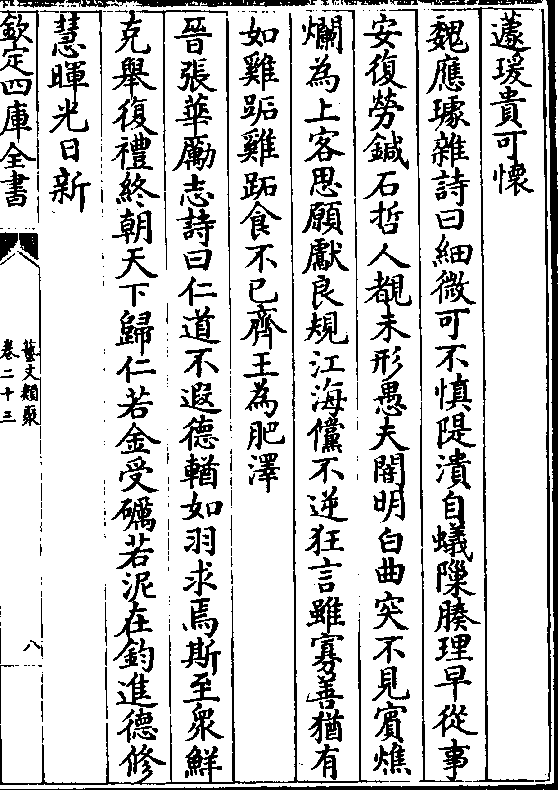 蘧瑗貴可懷
魏應璩雜詩曰細微可不慎隄潰自蟻隟腠理早從事
安復勞鍼石哲人覩未形愚夫闇明白曲突不見賓燋
爛為上客思願獻良規江海儻不逆狂言雖寡善猶有
如雞跖雞跖食不已齊王為肥澤
晉張華勵志詩曰仁道不遐德輶如羽求焉斯至衆鮮
克舉復禮終朝天下歸仁若金受礪若泥在鈞進德修
慧暉光日新
欽定四庫全書
藝文類聚
卷二十三
八